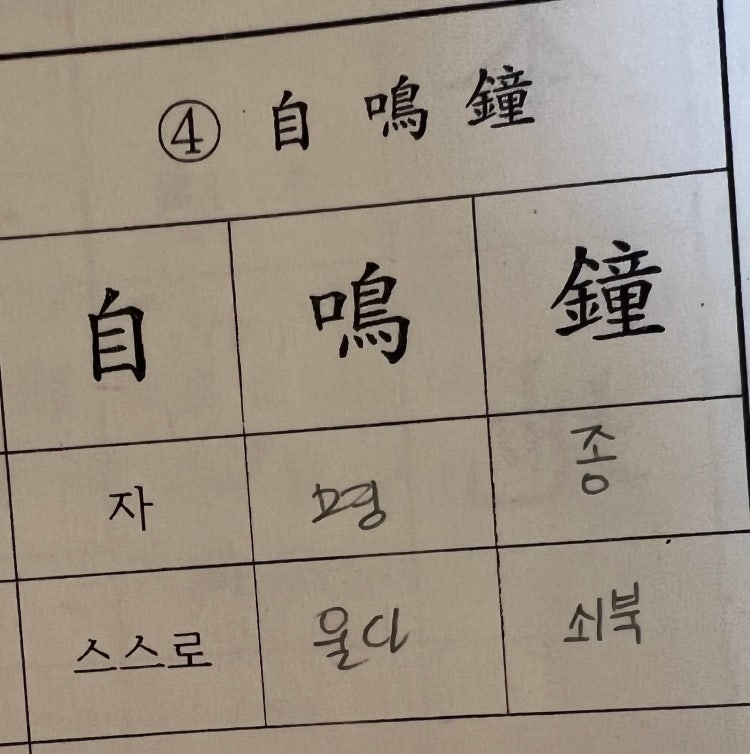 ④ 自 鳴 鐘
自 鳴 鐘
자 명 종
스스로 울다 쇠북